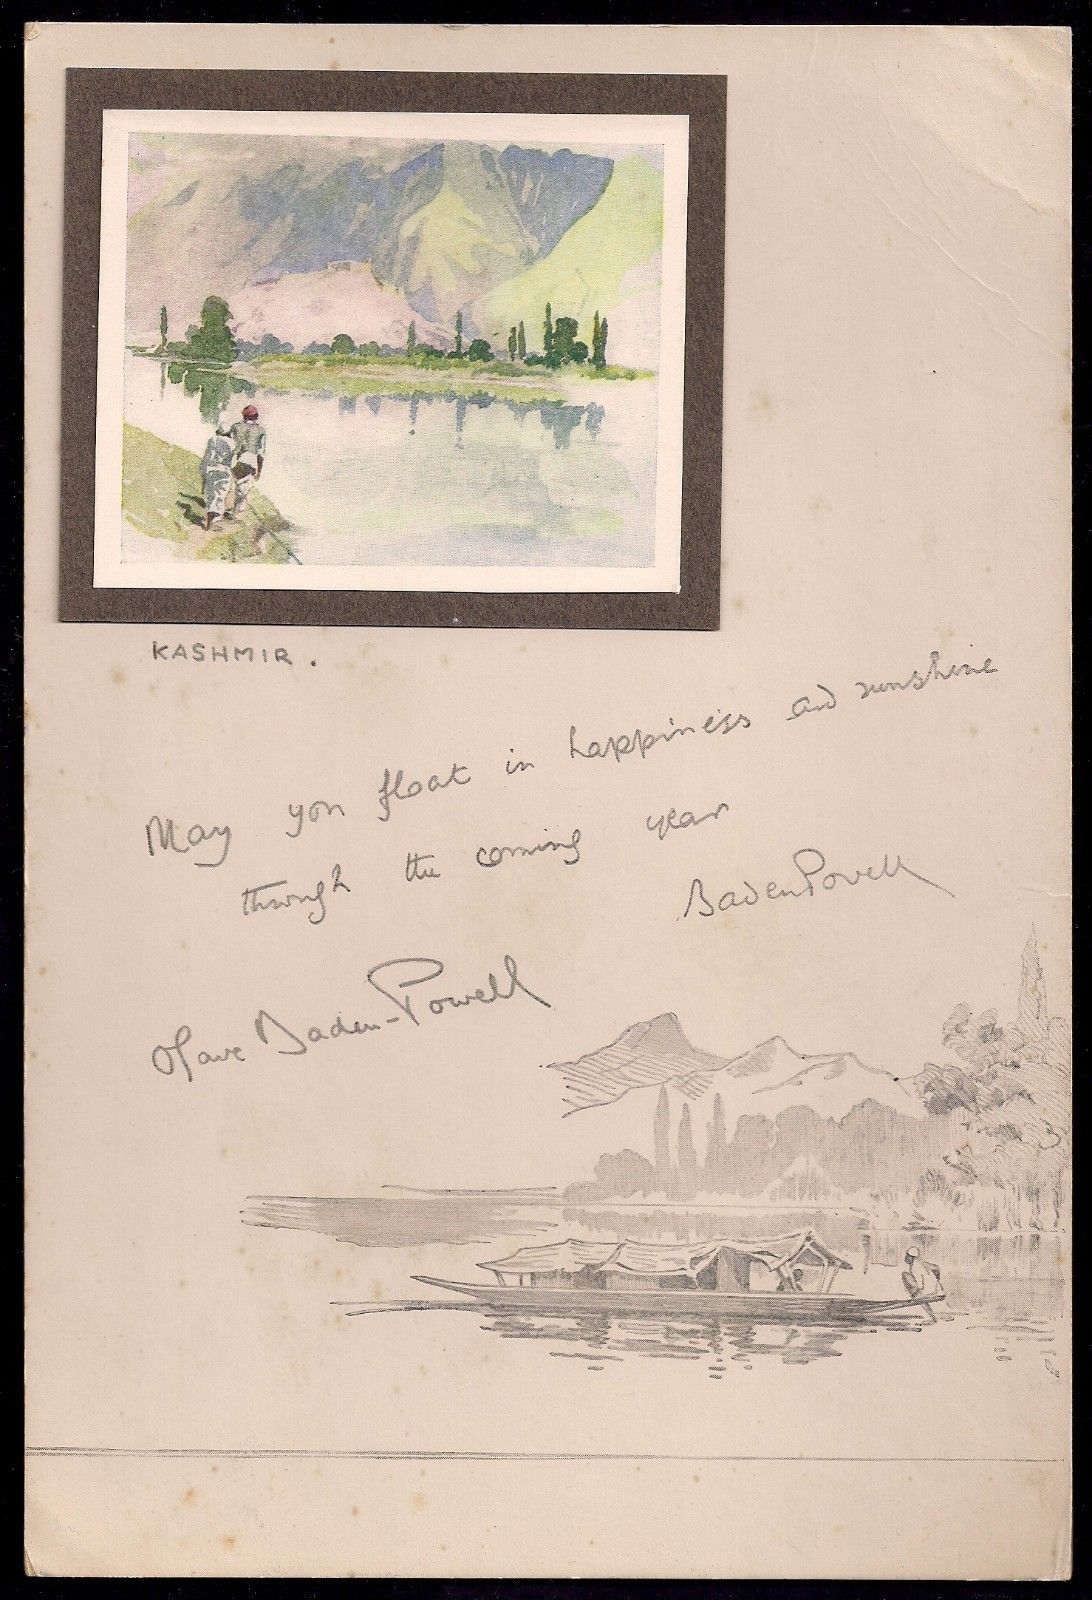 KASHMIR.
May you float in happiness and sunshine
through the coming year
Baden Powell
Olave Baden-Powell